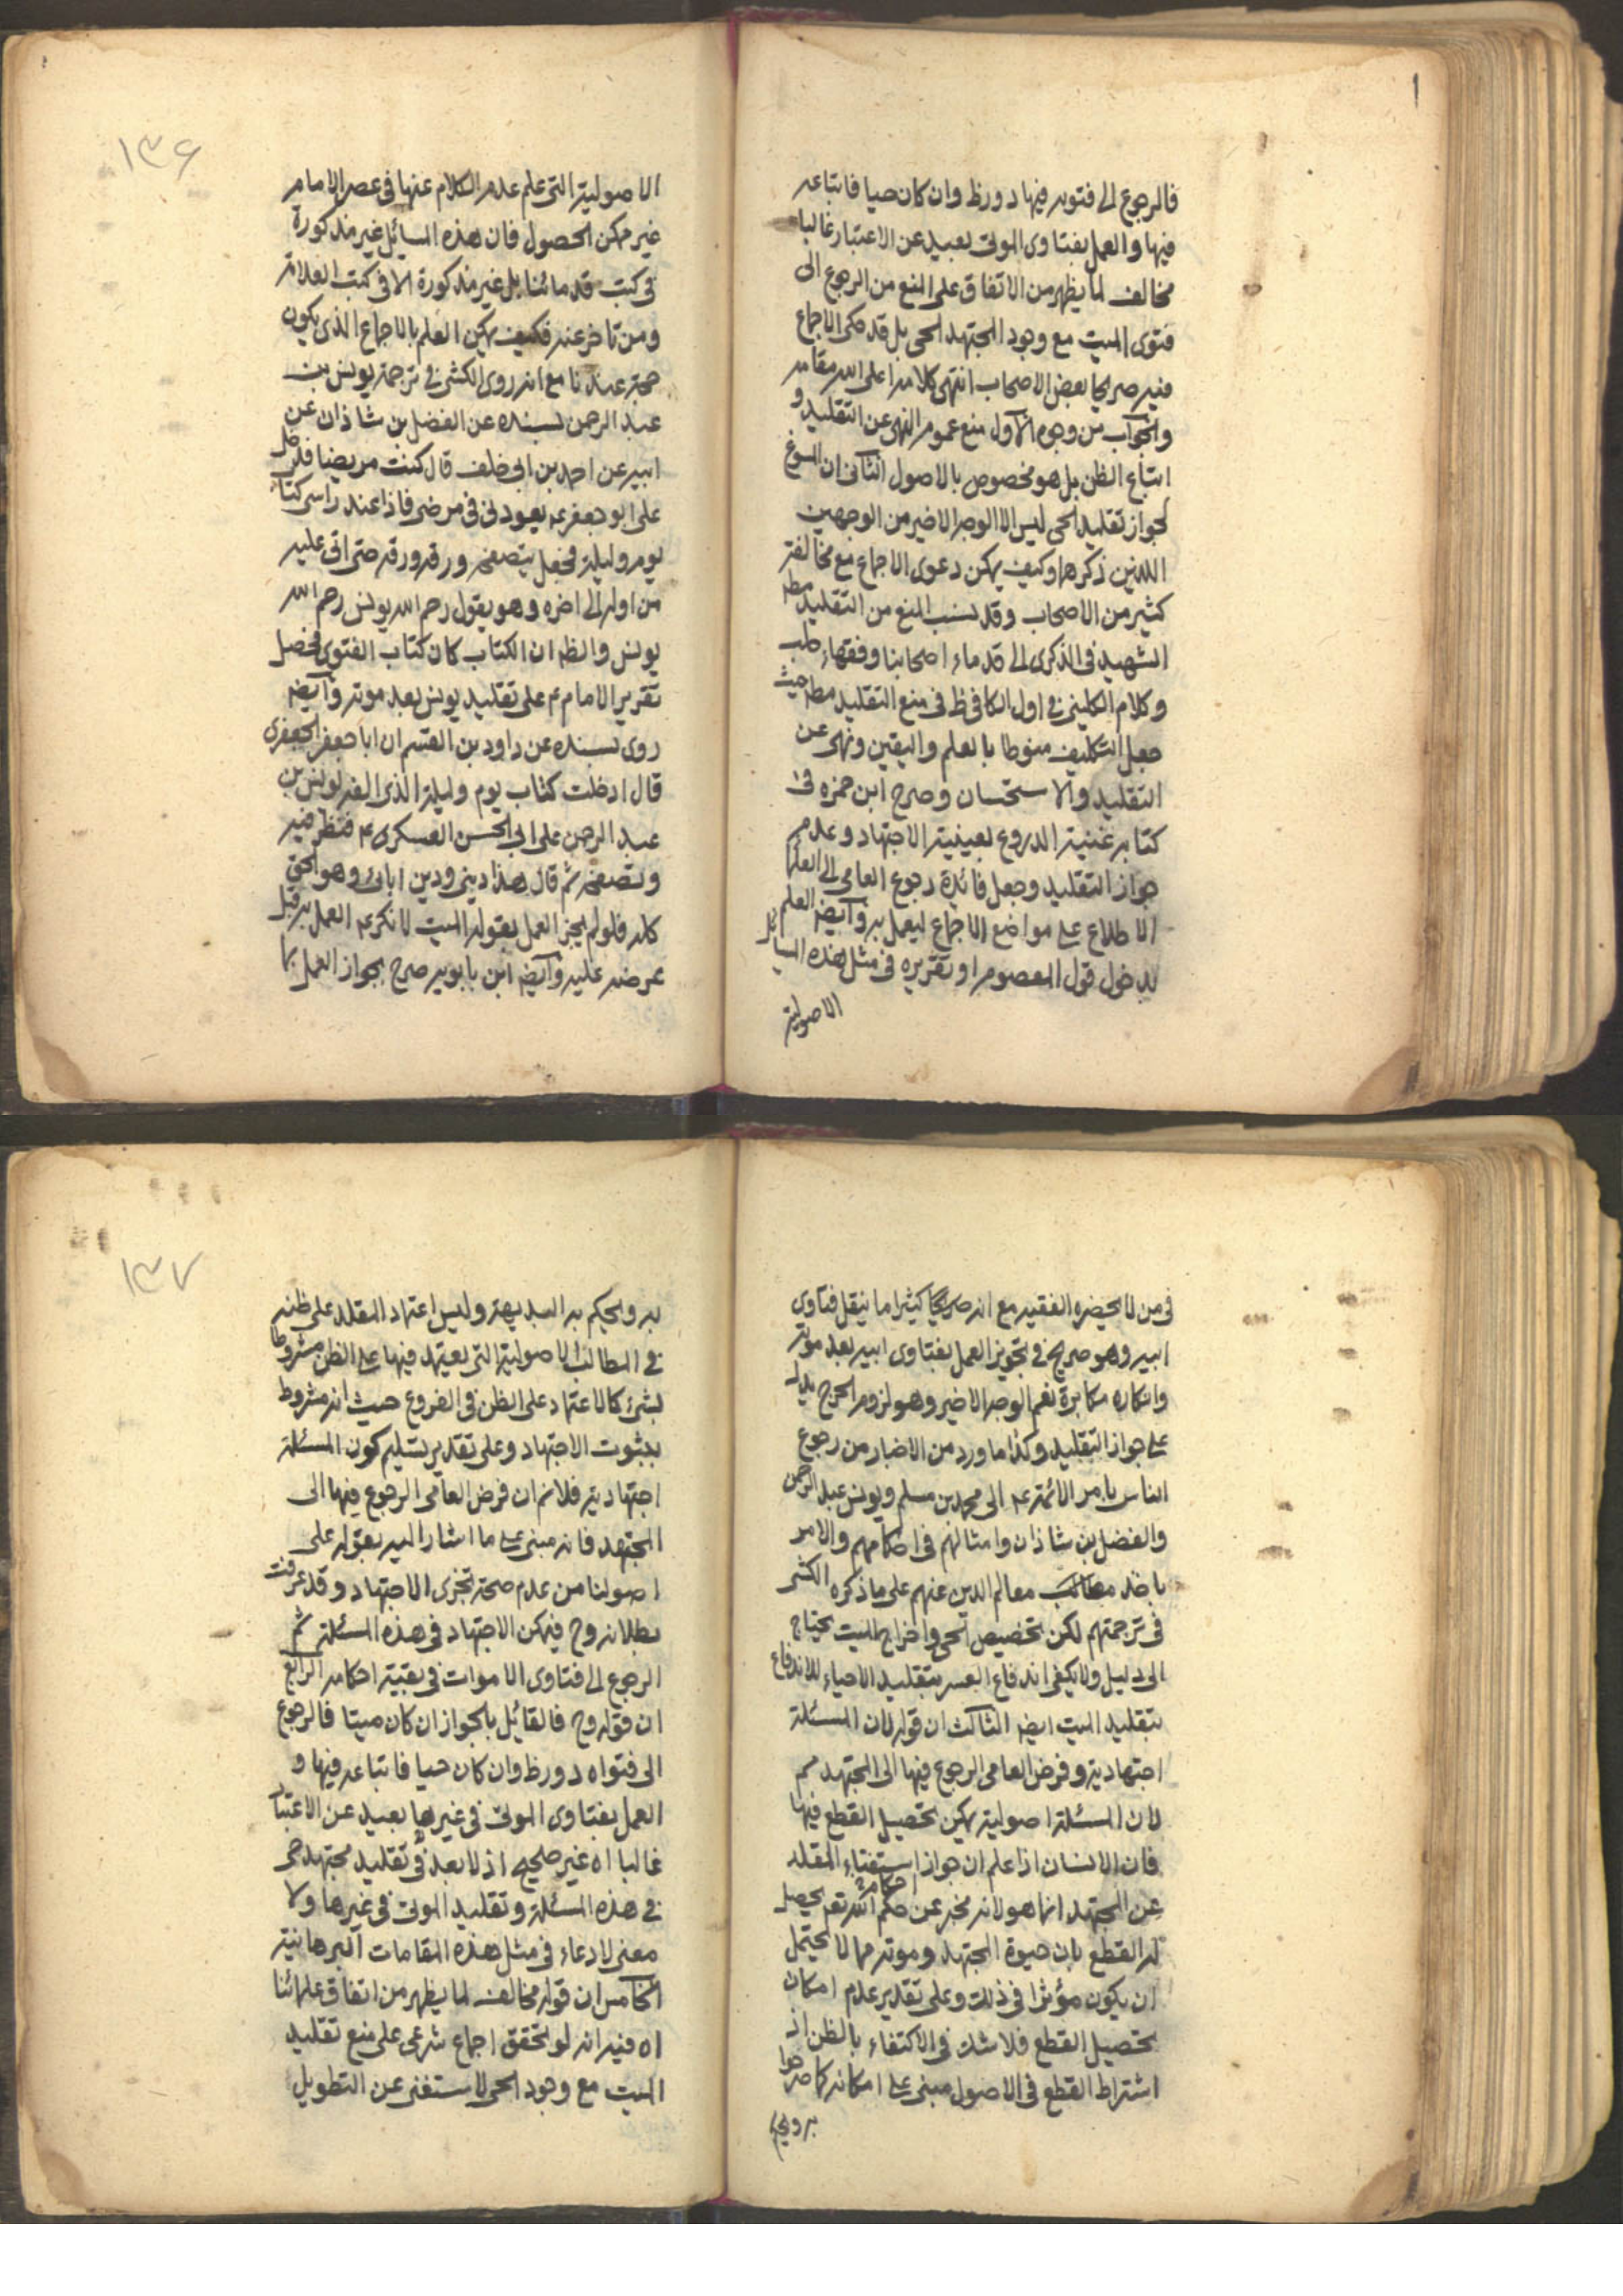 فالرجوع الى فتويه فيها دور ظ وان كان حيا فاتباعه
فيها والعمل بفتاوى الموتى بعيد عن الاعتبار غالبا
مخالف لما يظهر من الاتفاق على المنع من الرجوع الى
فتوى الميت مع وجود المجتهد الحى بل قد حكى الاجماع
فيه صريحا بعض الاصحاب انتهى كلامه اعلى الله مقامه
والجواب من وجوه الاول منع عموم النهى عن التقليد و
اتباع الظن بل هو مخصوص بالاصول الثانى ان المسوغ
لجواز تقليد الحى ليس الا الوجه الاخير من الوجهين
اللذين ذكرهما وكيف يمكن دعوى الاجماع مع مخالفة
كثير من الاصحاب وقد نسب المنع من التقليد مطه
الشهيد فى الذكرى الى قدماء اصحابنا وفقهاء حلب
وكلام الكلينى فى اول الكافى ظ فى منع التقليد مطه حيث
جعل التكليف منوطا بالعلم واليقين ونهى عن
التقليد والاستحسان وصرح ابن حمزه فى
كتابه غنية الدروع بعينية الاجتهاد وعدم
جواز التقليد وجعل فائدة رجوع العامى الى العلما
الاطلاع على مواضع الاجماع ليعمل به وايضه العلم
بدخول قول المعصوم او تقريره فى مثل هذه المسايل
الاصولية
١٣۶
الاصولية التى علم عدم الكلام عنها فى عصر الامام
غير ممكن الحصول فان هذه المسائل غير مذكورة
فى كتب قدمائنا بل غير مذكورة الا فى كتب العلامة
ومن تاخر عنه فكيف يمكن العلم بالاجماع الذى يكون
حجة عندنا مع انه روى الكشى فى ترجمة يونس بن
عبد الرحمن بسنده عن الفضل بن شاذان عن
ابيه عن احمد بن ابى خلف قال كنت مريضا فدخل
على ابو جعفر ع يعودنى فى مرضى فاذا عند راسى كتاب
يوم وليلة فجعل يتصفحه ورقة ورقة حتى اتى عليه
من اوله الى اخره وهو يقول رحم الله يونس رحم الله
يونس والظه ان الكتاب كان كتاب الفتوى فحصل
تقرير الامام ع على تقليد يونس بعد موته وايضه
روى بسنده عن داود بن القسم ان ابا جعفر الجعفرى
قال ادخلت كتاب يوم وليلة الذى الفه يونس بن
عبد الرحمن على ابى الحسن العسكرى ع فنظر فيه
وتصفحه ثم قال هذا دينى ودين ابائى وهو الحق
كله فلو لم يجز العمل بقول الميت لانكر ع العمل به قبل
عرضه عليه وايضه ابن بابويه صرح بجواز العمل بما
فى من لا يحضره الفقيه مع انه صريحا كثيرا ما ينقل فتاوى
ابيه وهو صريح فى تجويز العمل بفتاوى ابيه بعد موته
وانكاره مكابرة نعم الوجه الاخير وهو لزوم الحرج يدل
على جواز التقليد وكذا ما ورد من الاخبار من رجوع
الناس بامر الائمة ع الى محمد بن مسلم ويونس عبد الرحمن
والفضل بن شاذان وامثالهم فى احكامهم والامر
باخذ معالم الدين عنهم على ما ذكره الكشى
فى ترجمتهم لكن تخصيص الحى واخراج الميت يحتاج
الى دليل ولا يكفى اندفاع العسر بتقليد الاحياء للاندفاع
بتقليد الميت ايضه الثالث ان قوله لان المسئلة
اجتهادية وفرض العامى الرجوع فيها الى المجتهد مم
لان المسئلة اصولية يمكن تحصيل القطع فيها
فان الانسان اذا علم ان جواز استفتاء المقلد
عن المجتهد انما هو لانه مخبر عن احكام الله تعه يحصل
له القطع بان حيوة المجتهد وموته مما لا يحتمل
ان يكون مؤثرا فى ذلك وعلى تقدير عدم امكان
تحصيل القطع فلا شك فى الاكتفاء بالظن اذ
اشتراط القطع فى الاصول مبنى على امكانه كما صرحوا
به ويحكم
١٣٧
به ويحكم به البديهة وليس اعتماد المقلد على ظنه
فى المطالب الاصولية التى يعتمد فيها على الظن مشروطا
بشئ كالاعتماد على الظن فى الفروع حيث انه مشروط
بثبوت الاجتهاد وعلى تقدير تسليم كون المسئلة
اجتهادية فلانم ان فرض العامى الرجوع فيها الى
المجتهد فانه مبنى على ما اشار اليه بقوله على
اصولنا من عدم صحة تجزى الاجتهاد وقد عرفت
بطلانه وح فيمكن الاجتهاد فى هذه المسئلة ثم
الرجوع الى فتاوى الاموات فى بقية احكامه الرابع
ان قوله وح فالقائل بالجواز ان كان ميتا فالرجوع
الى فتواه دور ظ وان كان حيا فاتباعه فيها و
العمل بفتاوى الموتى فى غيرها بعيد عن الاعتبار
غالبا اه غير صحيح اذ لا بعد فى تقليد مجتهد حى
فى هذه المسئلة وتقليد الموتى فى غيرها ولا
معنى لادعاء فى مثل هذه المقامات البرهانية
الخامس ان قوله مخالف لما يظهر من اتفاق علمائنا
اه فيه انه لو تحقق اجماع شرعى على منع تقليد
الميت مع وجود الحى لاستغنى عن التطويل